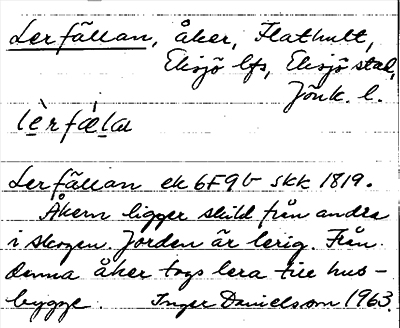 Lerfällan, åker, Flathult,
Eksjö lfs, Eksjö stad,
Jönk. l.
lèrfæ̀la
Lerfällan ek 6F9b skk 1819.
Åkern ligger skild från andra
i skogen. Jorden är lerig. Från
denna åker togs lera till hus-
bygge. Inger Danielsson 1963.